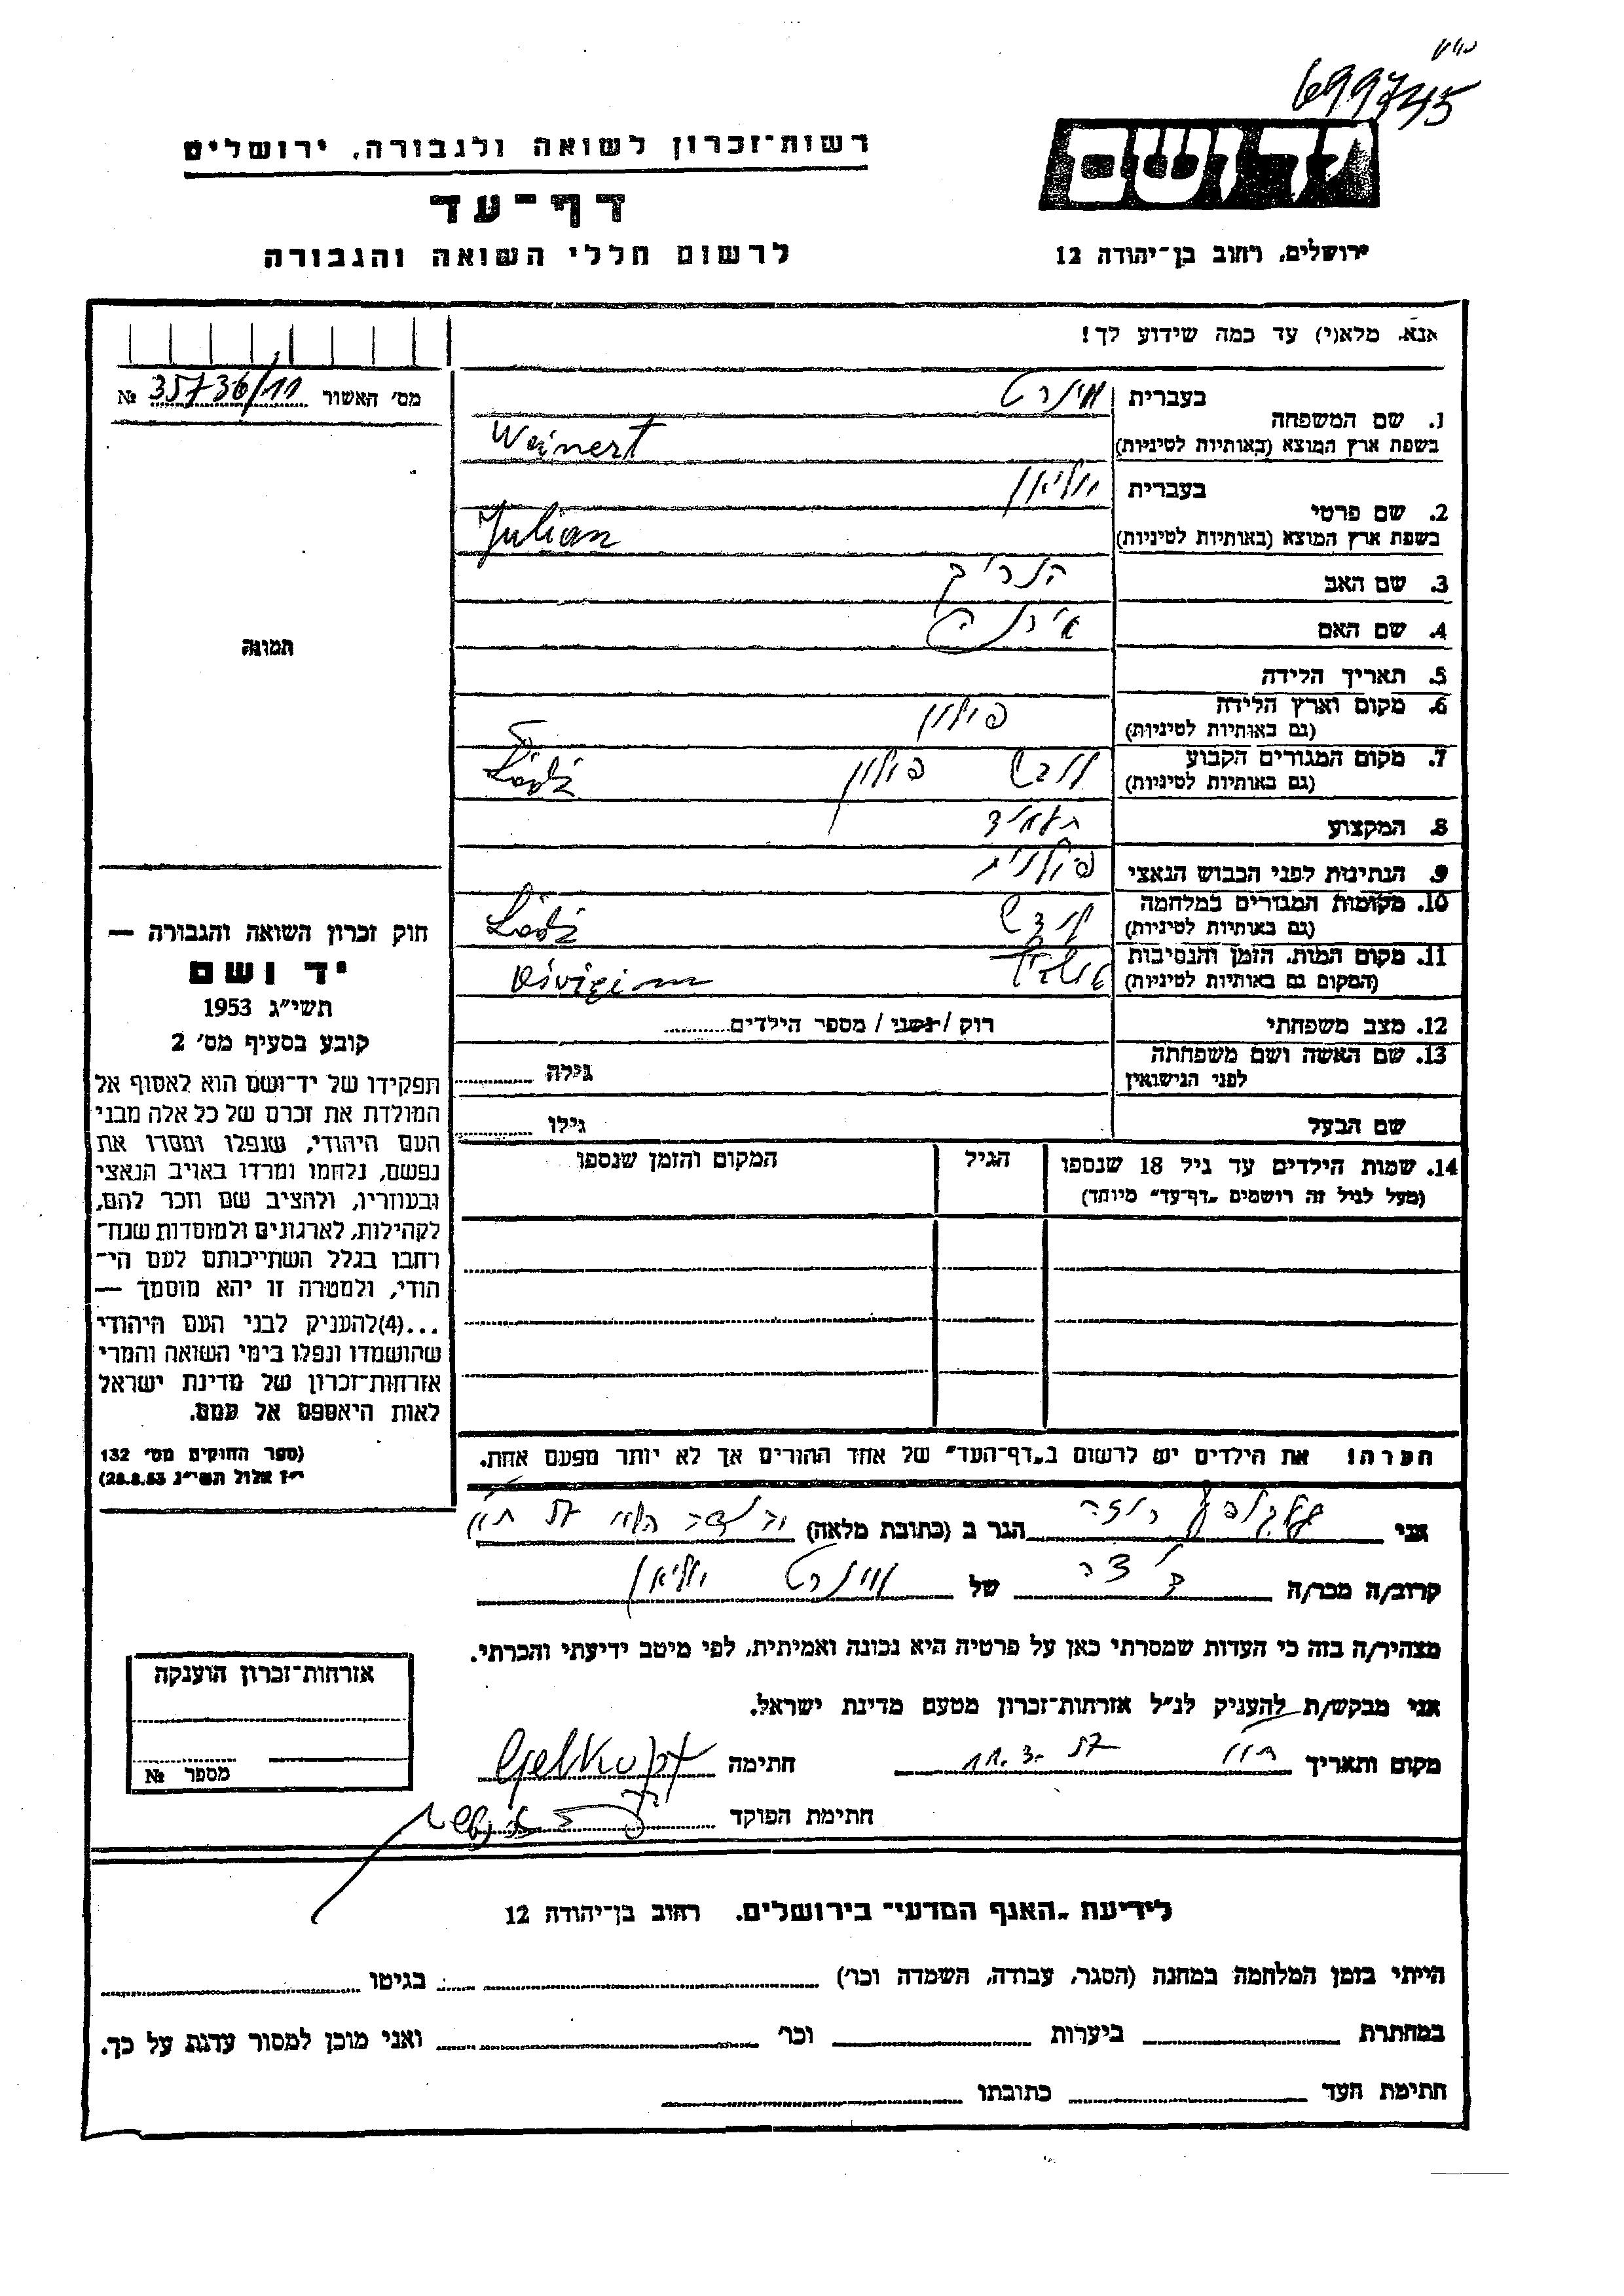 699745
רשות־זכרון לשואה ולגבורה, ירושלים
יד ושם
דף־עד
לרשום חללי השואה והגבורה
ירושלים, רחוב בן־יהודה 12
אנא, מלא(י) עד כמה שידוע לך!
מס׳ האשור 35736/11 №
1. שם המשפחה בעברית וינרט
בשפת ארץ המוצא (באותיות לטיניות) Weinert
2. שם פרטי בעברית יוליאן
בשפת ארץ המוצא (באותיות לטיניות) Julian
3. שם האב הנריק
4. שם האם אירנה
תמונה
5. תאריך הלידה
6. מקום וארץ הלידה פולין
(גם באותיות לטיניות)
7. מקום המגורים הקבוע לודז׳ פולין Łódź
(גם באותיות לטיניות)
8. המקצוע תלמיד
9. הנתינות לפני הכבוש הנאצי פולנית
10. מקומות המגורים במלחמה לודז׳ Łódź
(גם באותיות לטיניות)
11. מקום המות, הזמן והנסיבות Oświęcim
(המקום גם באותיות לטיניות)
12. מצב משפחתי רוק / נשוי / מספר הילדים
13. שם האשה ושם משפחתה גילה
לפני הנישואין
שם הבעל גילו
14. שמות הילדים עד גיל 18 שנספו הגיל המקום והזמן שנספו
(מעל לגיל זה רושמים „דף־עד״ מיוחד)
חוק זכרון השואה והגבורה —
יד ושם
תשי״ג 1953
קובע בסעיף מס׳ 2
תפקידו של יד־ושם הוא לאסוף אל
המולדת את זכרם של כל אלה מבני
העם היהודי, שנפלו ומסרו את
נפשם, נלחמו ומרדו באויב הנאצי
ובעוזריו, ולהציב שם וזכר להם,
לקהילות, לארגונים ולמוסדות שנח־
רחבו בגלל השתייכותם לעם הי־
הודי, ולמטרה זו יהא מוסמך —
...(4) להעניק לבני העם היהודי
שהושמדו ונפלו בימי השואה והמרי
אזרחות־זכרון של מדינת ישראל
לאות היאספם אל עמם.
(ספר החוקים מס׳ 132
י״ז אלול תשי״ג 28.8.53)
הערה! את הילדים יש לרשום ב„דף־העד״ של אחד ההורים אך לא יותר מפעם אחת.
אני גלבקופף רוזה הגר ב (כתובת מלאה) יהודה הלוי
קרוב/ה מכר/ה של וינרט יוליאן
מצהיר/ה בזה כי העדות שמסרתי כאן על פרטיה היא נכונה ואמיתית, לפי מיטב ידיעתי והכרתי.
אני מבקש/ת להעניק לנ״ל אזרחות־זכרון מטעם מדינת ישראל.
מקום ותאריך 11.3.57 חתימה Gelkopf
חתימת הפוקד
אזרחות־זכרון הוענקה
מספר №
לידיעת „האגף המדעי״ בירושלים, רחוב בן־יהודה 12
הייתי בזמן המלחמה במחנה (הסגר, עבודה, השמדה וכו׳) בגיטו
במחתרת ביערות וכו׳ ואני מוכן למסור עדות על כך.
חתימת העד כתובתו